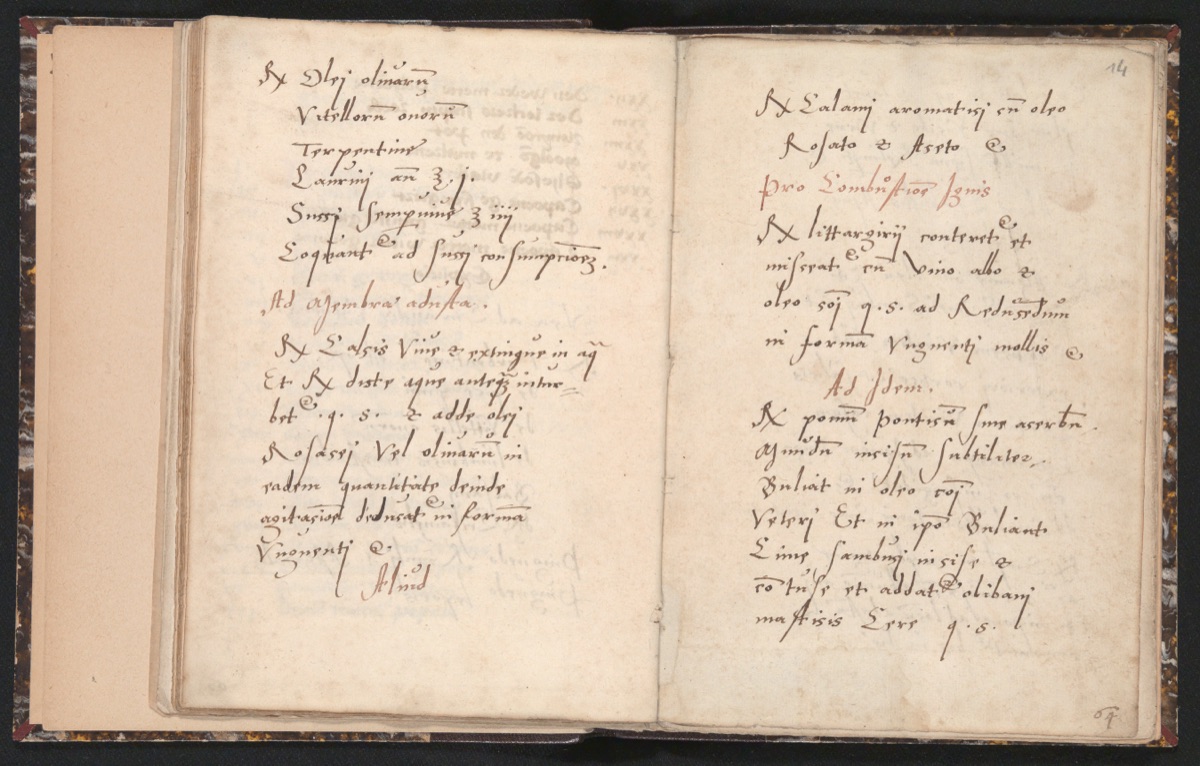 ℞ Olej olivarū
Vitellorū ovorū
Terpentine
Laurinj añ ʒ. j
Succj sempervive ʒ iiij
Coquant ad succj consumpcionē.
Ad Membra adusta.
℞ Calcis vive & extingue in aq̄
Et ℞ dicte aque anteq̄ intur=
bet . q . s . & adde olej
Rosacej vel olivarū in
eadem quantitate deinde
agitacioē deducat in formā
Vnguentj &.
Aliud
14
℞ Calamj aromaticj cū oleo
Rosato & Aceto &
Pro Combustioē Ignis
℞ littargirij conteret et
misceat cū vino albo &
oleo cōj q . s . ad Reducēdum
in formā Vnguentj mollis &
Ad Idem.
℞ pomū ponticū sine acerbū.
Mundū incisū subtiliter.
Buliat in oleo cōj
veterj Et in ipō Buliant
Cime sambucj incise &
cōtuse et addat olibanj
masticis Cere q . s .